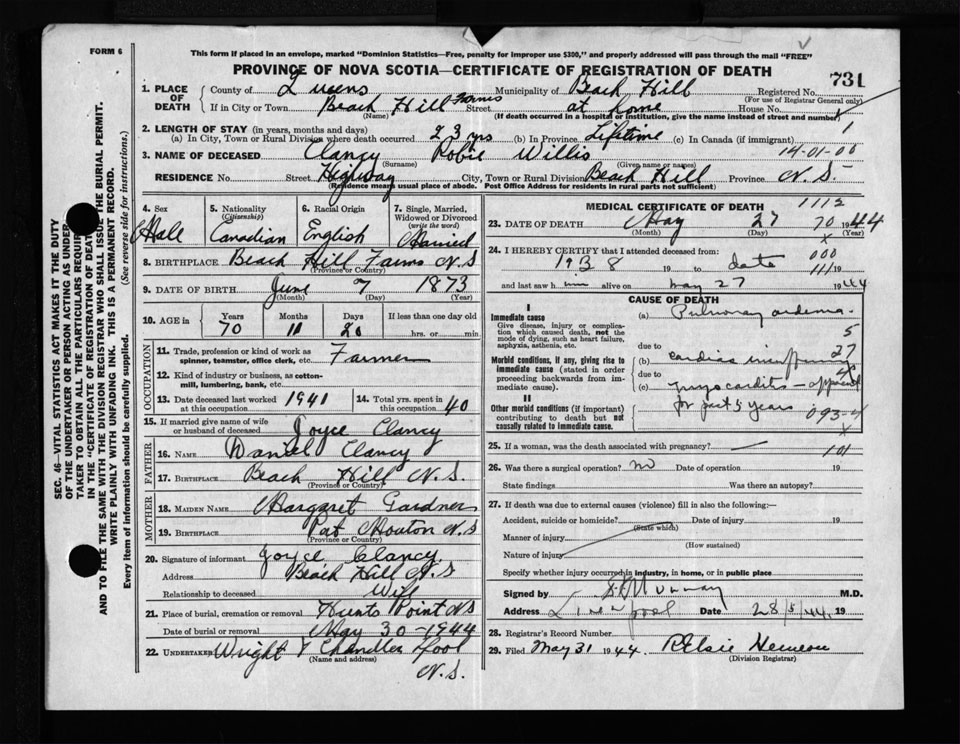 FORM 6
This form if placed in an envelope, marked "Dominion Statistics—Free, penalty for improper use $300," and properly addressed will pass through the mail "FREE"
PROVINCE OF NOVA SCOTIA—CERTIFICATE OF REGISTRATION OF DEATH
731
1. PLACE OF DEATH
County of Queens Municipality of Beach Hill Registered No.
(For use of Registrar General only)
If in City or Town Beach Hill Farms Street at home House No.
(Name) (If death occurred in a hospital or institution, give the name instead of street and number)
2. LENGTH OF STAY (in years, months and days)
1
(a) In City, Town or Rural Division where death occurred 23 yrs (b) In Province Lifetime (c) In Canada (if immigrant)
3. NAME OF DECEASED Clancy Robie Willis 14-01-00
(Surname) (Given name or names)
RESIDENCE No. Street Highway City, Town or Rural Division Beach Hill Province N.S.
(Residence means usual place of abode. Post Office Address for residents in rural parts not sufficient)
4. Sex
Male
5. Nationality
(Citizenship)
Canadian
6. Racial Origin
English
7. Single, Married, Widowed or Divorced
(write the word)
Married
8. BIRTHPLACE Beach Hill Farms N.S
(Province or Country)
9. DATE OF BIRTH June 7 1873
(Month) (Day) (Year)
10. AGE in
Years Months Days If less than one day old
70 11 20 hrs. or min.
OCCUPATION
11. Trade, profession or kind of work as spinner, teamster, office clerk, etc. Farmer
12. Kind of industry or business, as cotton-mill, lumbering, bank, etc.
13. Date deceased last worked at this occupation 1941
14. Total yrs. spent in this occupation 40
15. If married give name of wife or husband of deceased Joyce Clancy
FATHER
16. NAME Daniel Clancy
17. BIRTHPLACE Beach Hill N.S.
(Province or Country)
MOTHER
18. MAIDEN NAME Margaret Gardner
19. BIRTHPLACE Port Mouton N.S
(Province or Country)
20. Signature of informant Joyce Clancy
Address Beach Hill N.S
Relationship to deceased Wife
21. Place of burial, cremation or removal Hunts Point N.S
Date of burial or removal May 30-1944
22. UNDERTAKER Wright & Chandler
(Name and address)
N.S.
MEDICAL CERTIFICATE OF DEATH
1112
23. DATE OF DEATH May 27 70 1944
(Month) (Day) (Year)
24. I HEREBY CERTIFY that I attended deceased from:
000
1938 19 to date 111 19
and last saw h im alive on may 27 1944
CAUSE OF DEATH
I
Immediate cause
Give disease, injury or complication which caused death, not the mode of dying, such as heart failure, asphyxia, asthenia, etc.
Morbid conditions, if any, giving rise to immediate cause (stated in order proceeding backwards from immediate cause).
II
Other morbid conditions (if important) contributing to death but not causally related to immediate cause.
(a) Pulmonary oedema
due to 5
(b) cardiac insufficiency 27
due to
(c) myocarditis – apparent
for past 5 years
093-4
25. If a woman, was the death associated with pregnancy? 101
26. Was there a surgical operation? no Date of operation 19
State findings Was there an autopsy?
27. If death was due to external causes (violence) fill in also the following:—
Accident, suicide or homicide? Date of injury 19
(State which)
Manner of injury
(How sustained)
Nature of injury
Specify whether injury occurred in industry, in home, or in public place
Signed by Murray M.D.
Address Liverpool Date 28/5/44 19
28. Registrar's Record Number
29. Filed May 31 1944. Elsie
(Division Registrar)
SEC. 46—VITAL STATISTICS ACT MAKES IT THE DUTY
OF THE UNDERTAKER OR PERSON ACTING AS UNDER
TAKER TO OBTAIN ALL THE PARTICULARS REQUIR
IN THE "CERTIFICATE OF REGISTRATION OF DEAT
AND TO FILE THE SAME WITH THE DIVISION REGISTRAR WHO SHALL ISSUE THE BURIAL PERMIT.
WRITE PLAINLY WITH UNFADING INK. THIS IS A PERMANENT RECORD.
Every item of information should be carefully supplied. (See reverse side for instructions.)